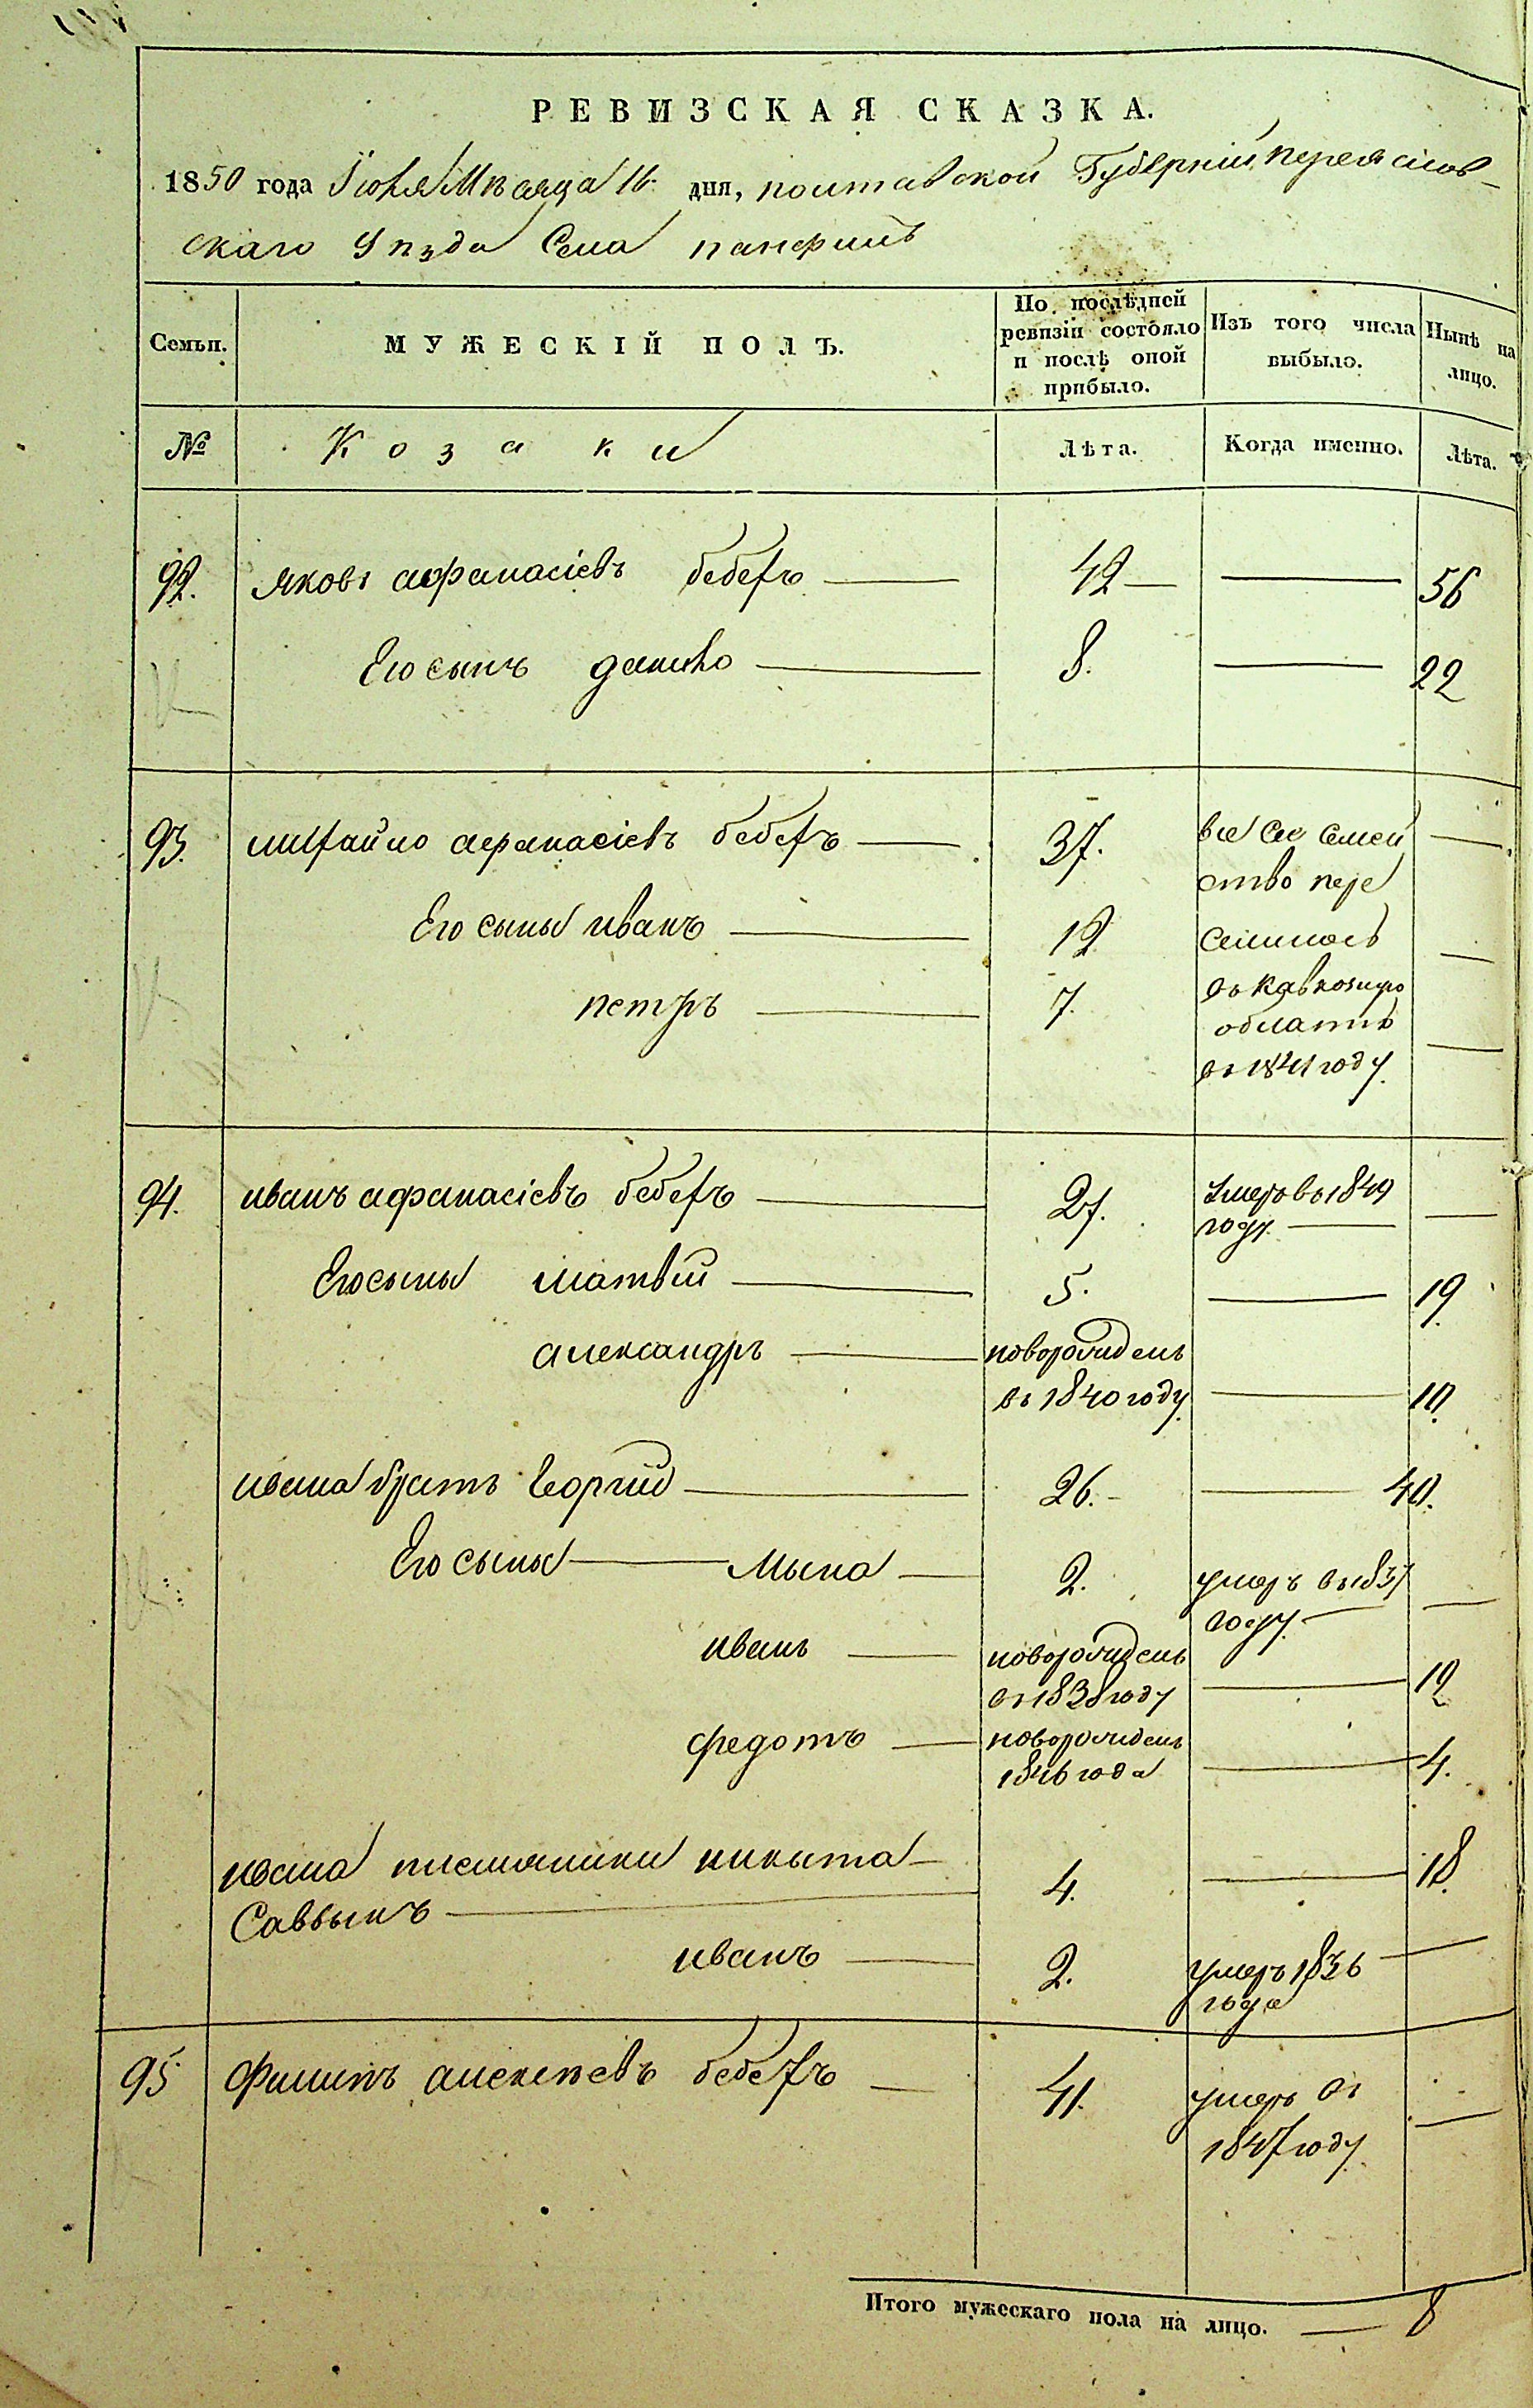 РЕВИЗСКАЯ СКАЗКА.
1850 года Іюля Мѣсяца 16 дня, полтавской Губерніи переяслов-
скаго Уѣзда Села панфилъ
Семьи. МУЖЕСКІЙ ПОЛЪ. По послѣдней ревизіи состояло и послѣ оной прибыло. Изъ того числа выбыло. Нынѣ на лицо.
№ Козаки Лѣта. Когда именно. Лѣта.
92. яковъ афанасіевъ бебехъ — 42 — — 56
Его сынъ данило — 8. — 22
93. михайло афанасіевъ бебехъ — 37. все сее семей —
ство пере
Его сыны иванъ — 12 селилось —
петръ — 7. въ кавкозкую
область —
въ 1841 году.
94. иванъ афанасіевъ бебехъ — 27. Умеръ во 1849 —
году. —
Его сыны матвій — 5. — 19.
александръ — новорожденъ
въ 1840 году. — 10.
ивана братъ Георгій — 26. — — 40.
Его сыны — Мына — 2. умеръ въ 1837
году. — —
иванъ — новорожденъ
въ 1838 году — 12
федотъ — новорожденъ
1846 года — 4.
ивана племянники никыта — 4. — 18.
Саввынъ —
иванъ — 2. умеръ 1836 —
года
95 Филипъ алексѣевъ бебехъ — 41. умеръ въ —
1847 году.
Итого мужескаго пола на лицо. — 8